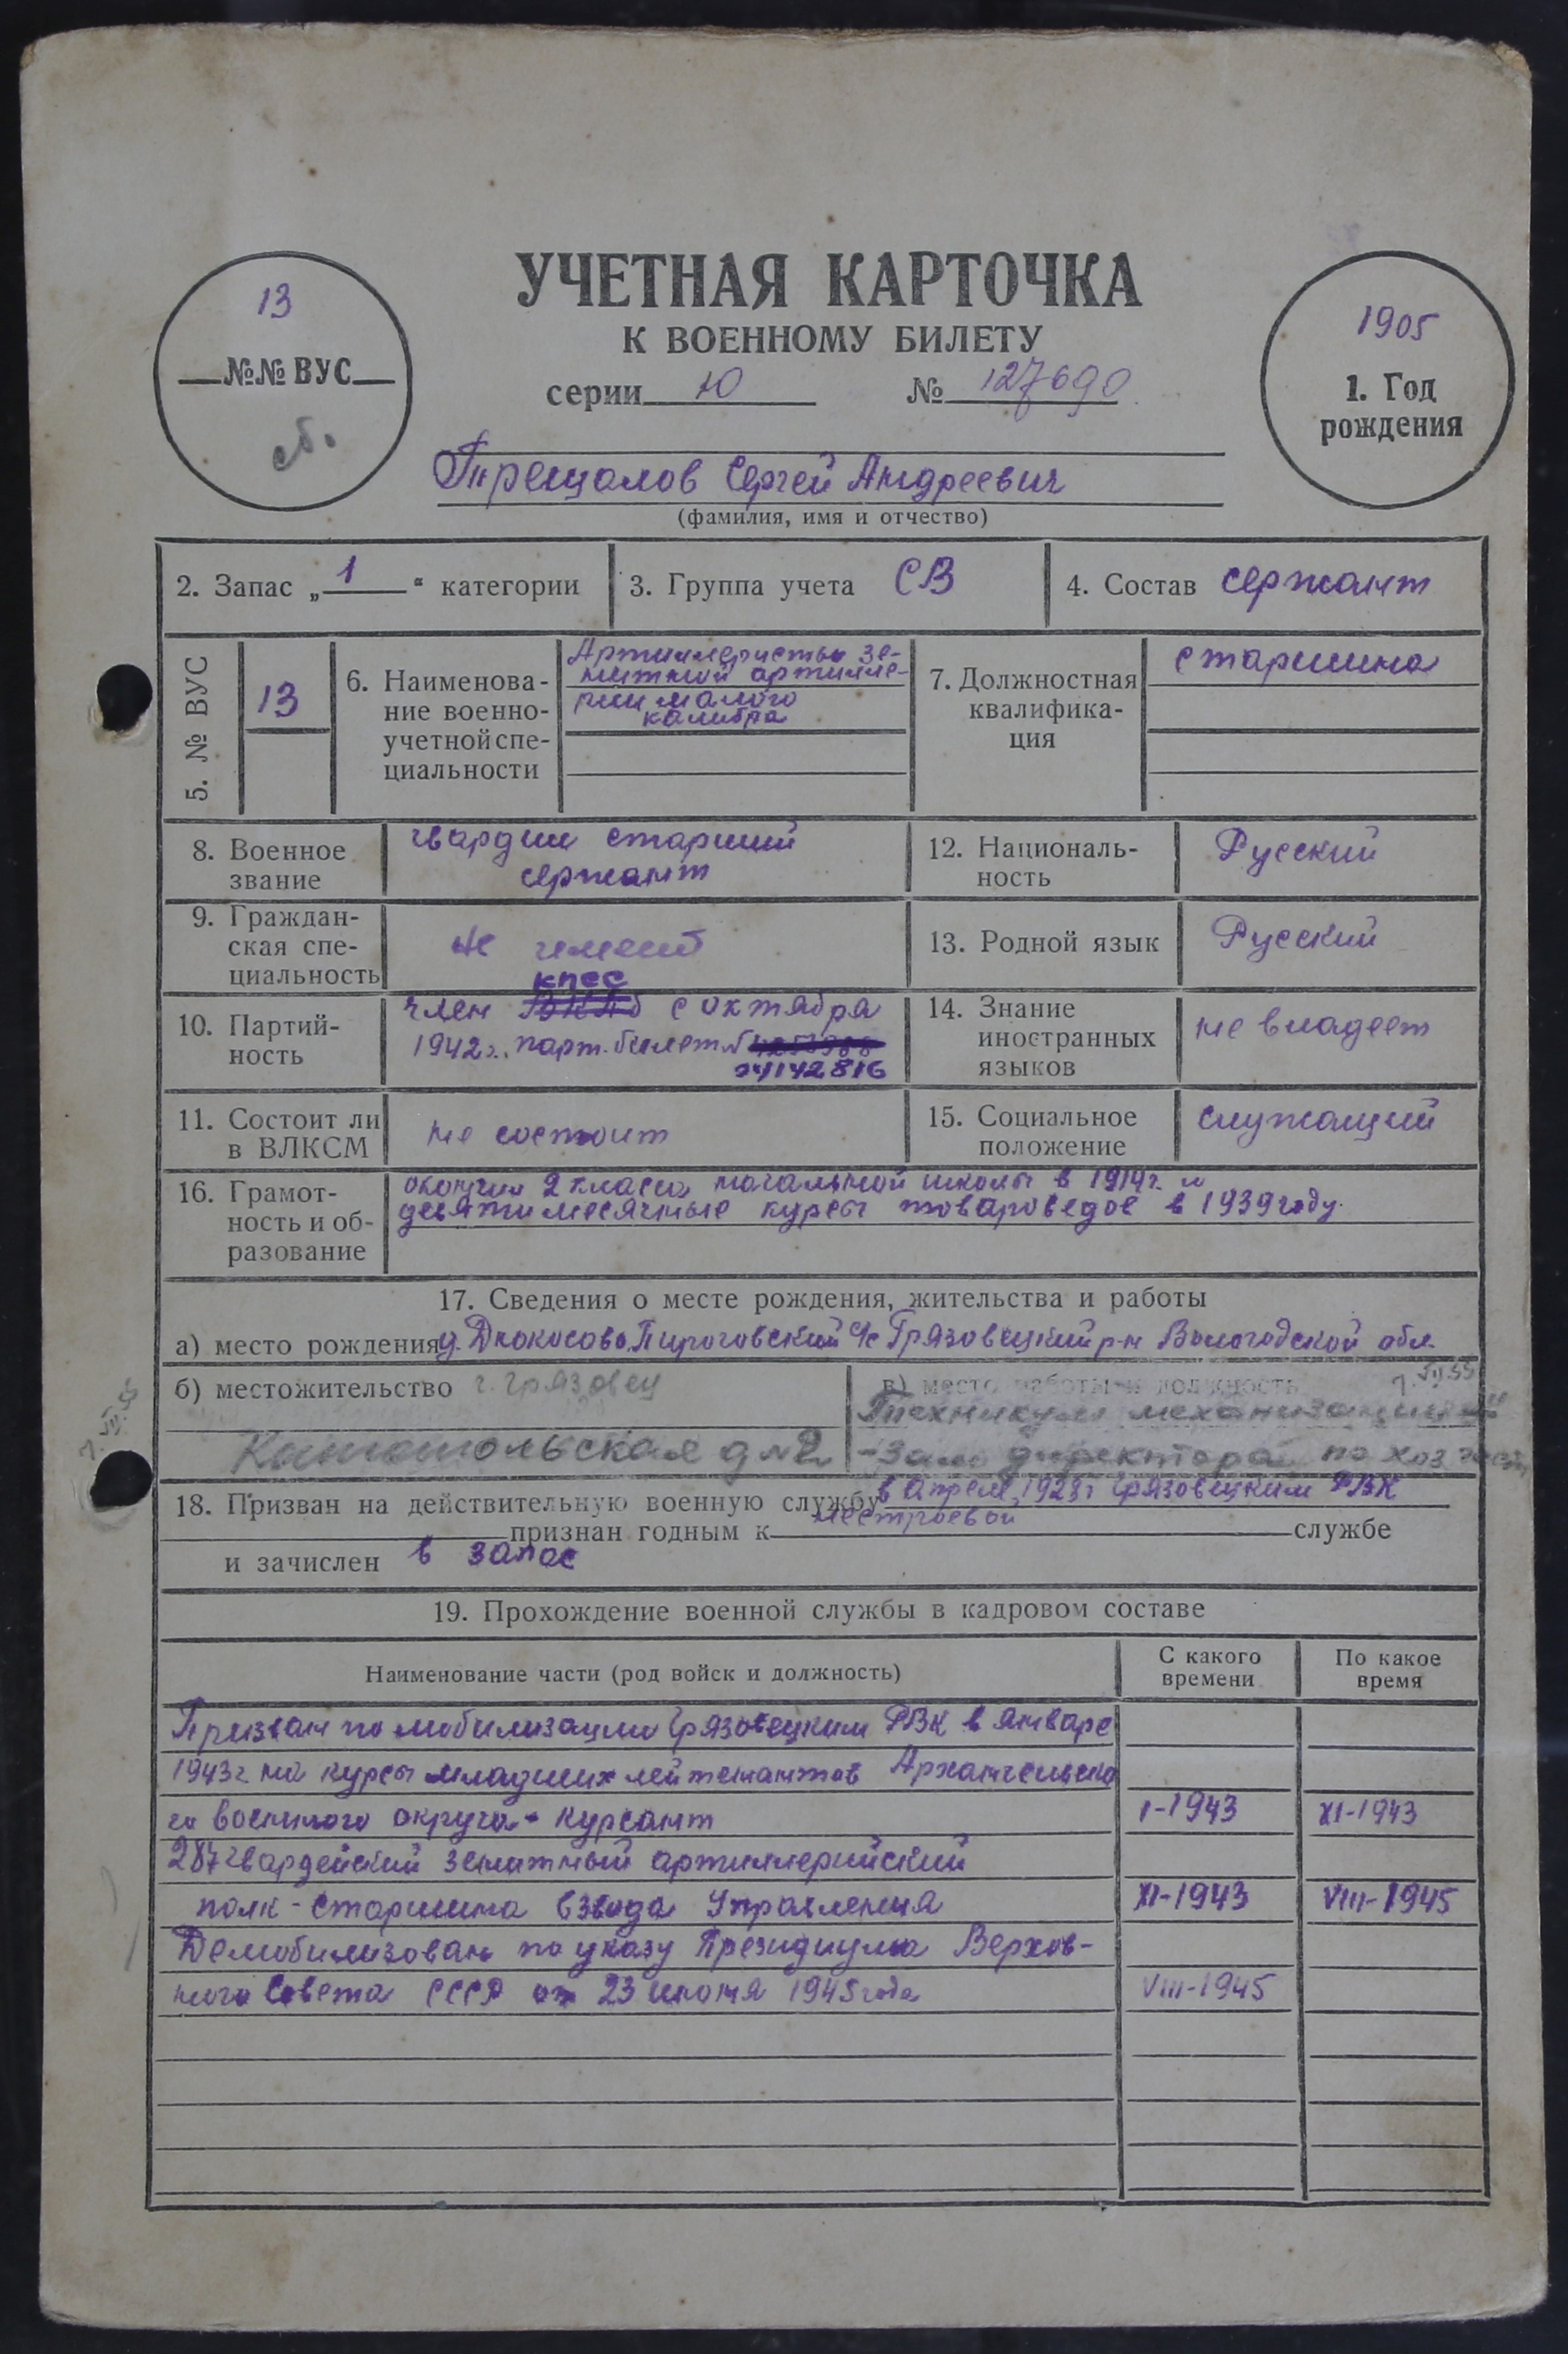 УЧЕТНАЯ КАРТОЧКА
К ВОЕННОМУ БИЛЕТУ
серии Ю № 127690
13
№№ ВУС
сб.
1905
1. Год
рождения
Трещалов Сергей Андреевич
(фамилия, имя и отчество)
2. Запас „1“ категории
3. Группа учета СВ
4. Состав сержант
5. № ВУС
13
6. Наименова-
ние военно-
учетной спе-
циальности
Артиллеристы зе-
нитной артилле-
рии малого
калибра
7. Должностная
квалифика-
ция
старшина
8. Военное
звание
гвардии старший
сержант
12. Националь-
ность
Русский
9. Граждан-
ская спе-
циальность
не имеет
13. Родной язык
Русский
10. Партий-
ность
КПСС
член ВКПб с октября
1942 г. парт. билет №
04142816
14. Знание
иностранных
языков
не владеет
11. Состоит ли
в ВЛКСМ
не состоит
15. Социальное
положение
служащий
16. Грамот-
ность и об-
разование
окончил 2 класса начальной школы в 1914г. и
десятимесячные курсы товароведов в 1939 году.
17. Сведения о месте рождения, жительства и работы
а) место рождения д. Дюкосово, Пироговский с/с Грязовецкий р-н Вологодской обл.
б) местожительство г. Грязовец
д №2
в) место работы и должность
Техникум механизации
-Зам директора по хоз части
18. Призван на действительную военную службу в апреле 1928г Грязовецким РВК
признан годным к нестроевой службе
и зачислен в запас
19. Прохождение военной службы в кадровом составе
Наименование части (род войск и должность)
С какого
времени
По какое
время
Призван по мобилизации Грязовецким РВК в январе
1943г на курсы младших лейтенантов Архангельско
го военного округа - курсант I-1943 XI-1943
287 гвардейский зенитный артиллерийский
полк - старшина взвода Управления XI-1943 VIII-1945
Демобилизован по указу Президиума Верхов-
ного Совета СССР от 23 июня 1945 года VIII-1945